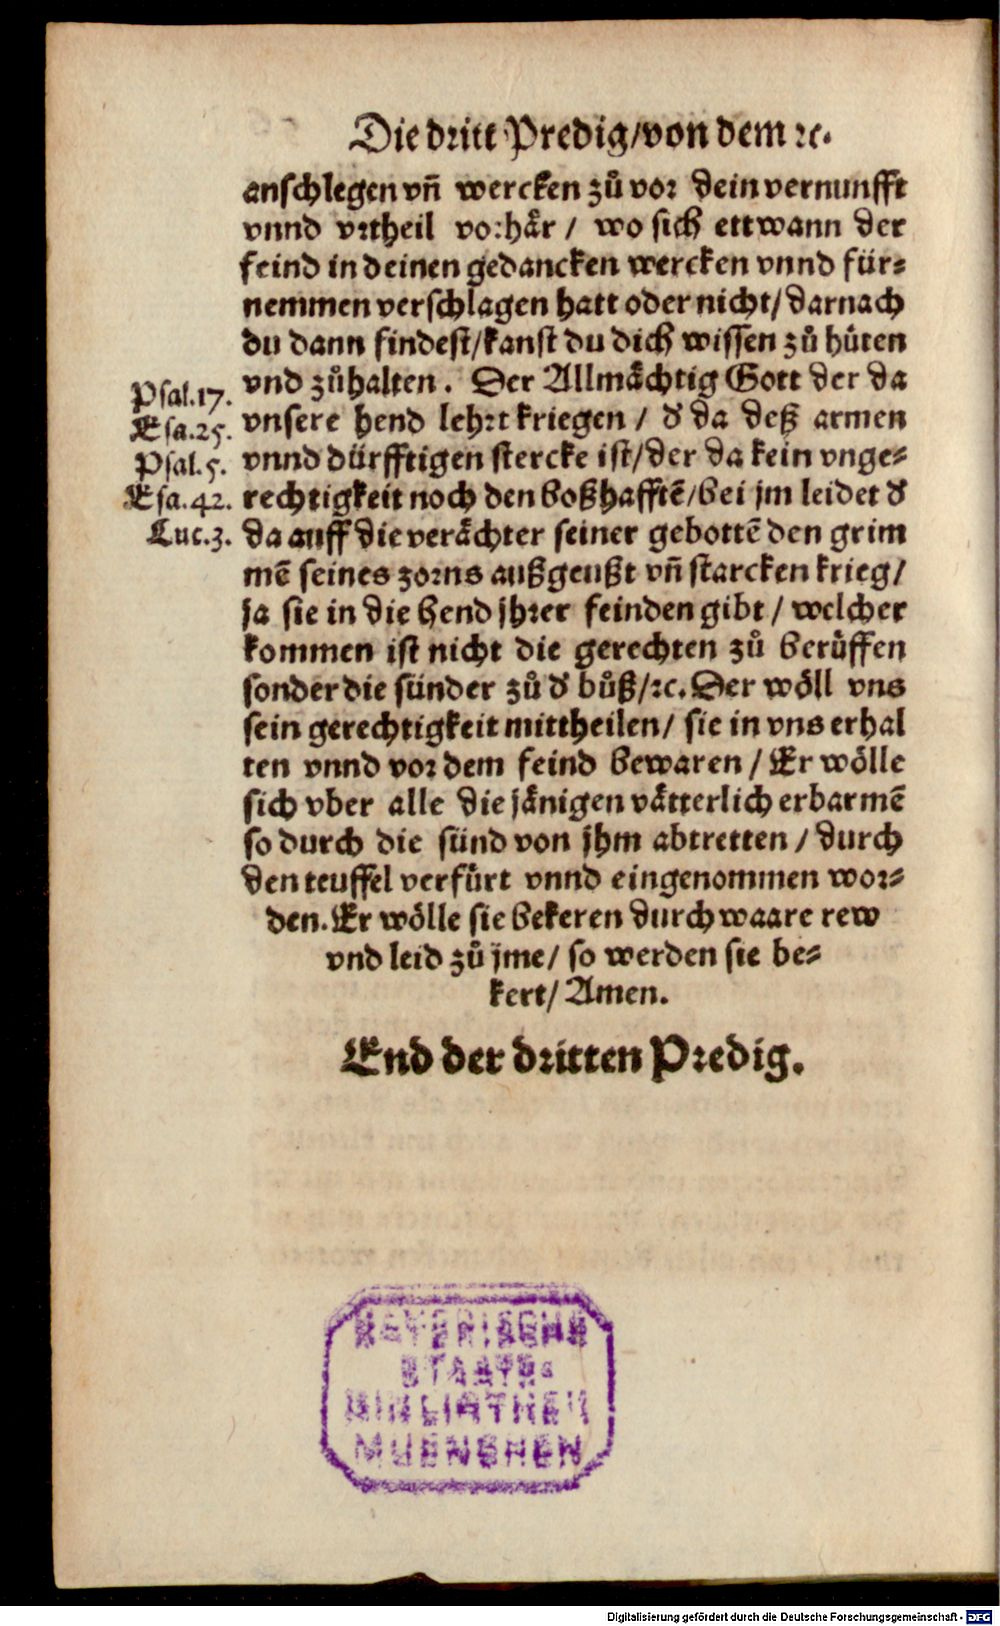 Die dritt Predig/von dem ꝛc.
anschlegen vñ wercken zů vor dein vernunfft
vnnd vrtheil vorhår / wo sich ettwann der
feind in deinen gedancken wercken vnnd für⸗
nemmen verschlagen hatt oder nicht/ darnach
du dann findest/kanst du dich wissen zů hüten
vnd zůhalten. Der Allmåchtig Gott der da
Psal.17.
vnsere hend lehrt kriegen / d̕ da deß armen
Esa.25.
vnnd dürfftigen stercke ist/der da kein vnge⸗
Psal.5.
rechtigkeit noch den boßhafftẽ/bei jm leidet d̕
Esa.42.
da auff die veråchter seiner gebottẽ den grim
Luc.3.
mẽ seines zorns außgeußt vñ starcken krieg/
ja sie in die hend jhrer feinden gibt / welcher
kommen ist nicht die gerechten zů berüffen
sonder die sünder zů d̕ bůß/ꝛc. Der wöll vns
sein gerechtigkeit mittheilen/ sie in vns erhal
ten vnnd vor dem feind bewaren / Er wölle
sich vber alle die jånigen våtterlich erbarmẽ
so durch die sünd von jhm abtretten / durch
den teuffel verfürt vnnd eingenommen wor⸗
den. Er wölle sie bekeren durch waare rew
vnd leid zů jme/ so werden sie be⸗
kert/ Amen.
End der dritten Predig.
BAYERISCHE
STAATS-
BIBLIOTHEK
MUENCHEN
Digitalisierung gefördert durch die Deutsche Forschungsgemeinschaft - DFG